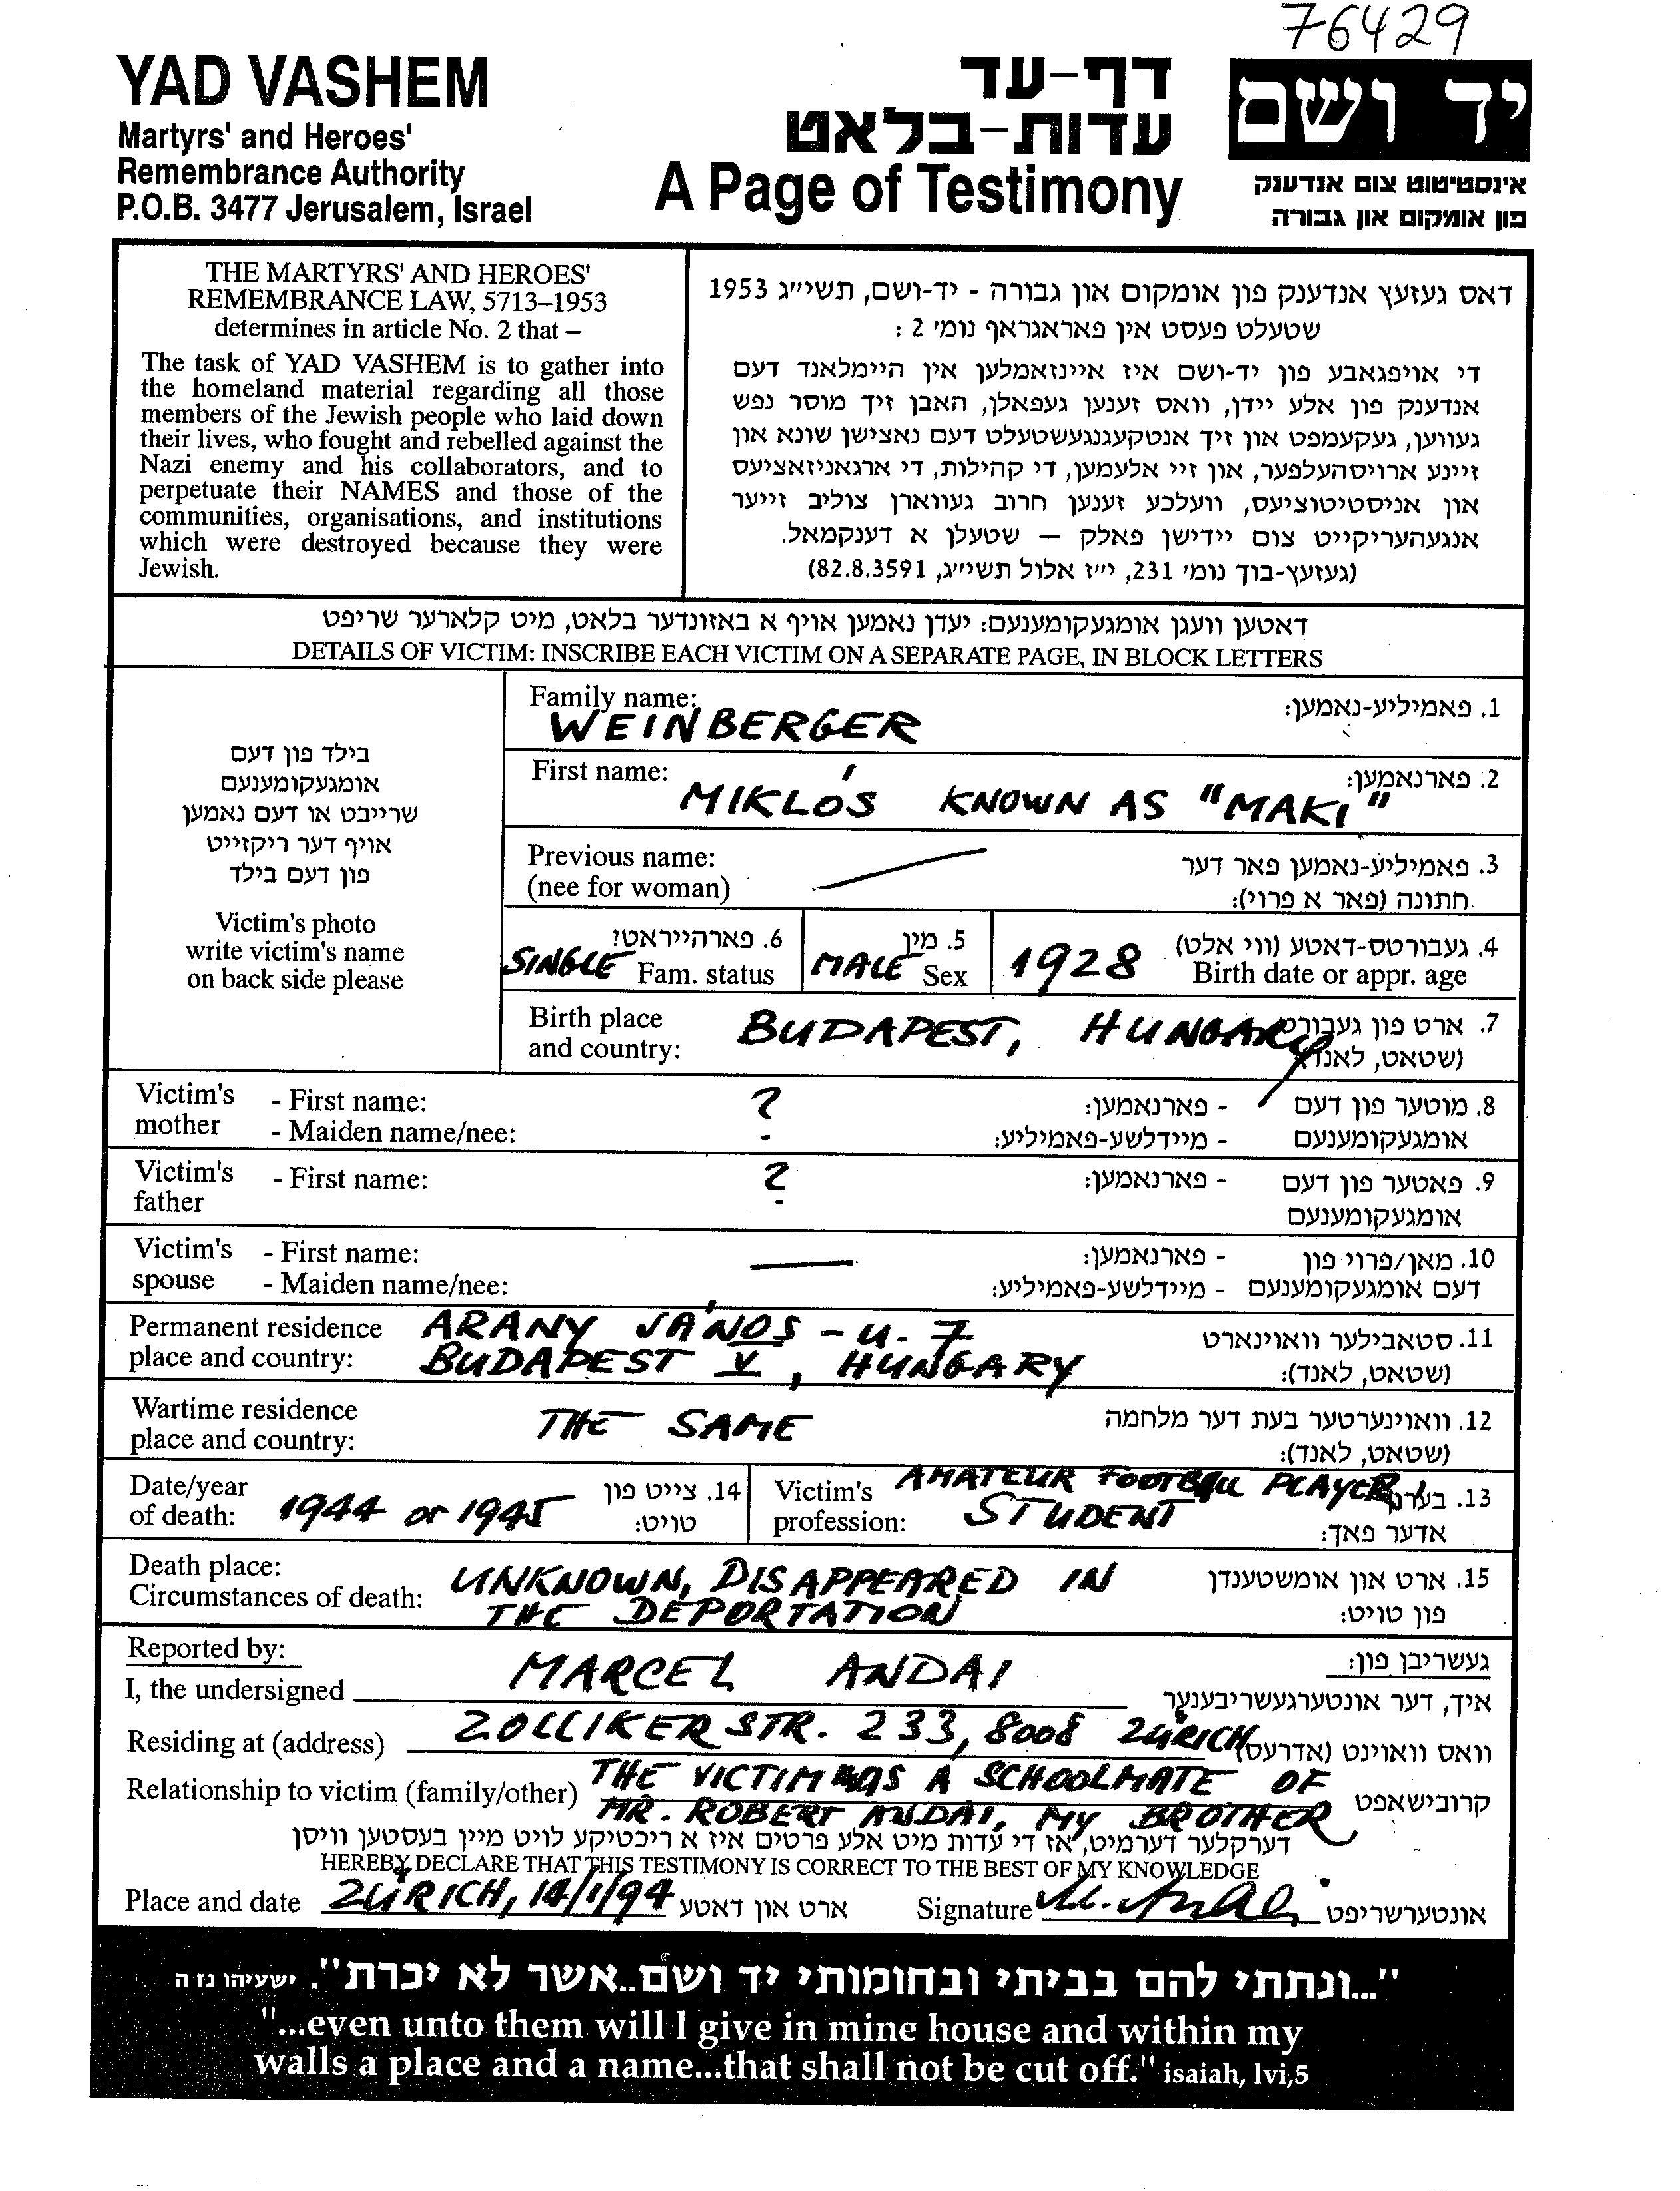 76429
YAD VASHEM
Martyrs' and Heroes'
Remembrance Authority
P.O.B. 3477 Jerusalem, Israel
דף-עד
עדות-בלאט
A Page of Testimony
יד ושם
אינסטיטוט צום אנדענק
פון אומקום און גבורה
THE MARTYRS' AND HEROES'
REMEMBRANCE LAW, 5713–1953
determines in article No. 2 that –
The task of YAD VASHEM is to gather into
the homeland material regarding all those
members of the Jewish people who laid down
their lives, who fought and rebelled against the
Nazi enemy and his collaborators, and to
perpetuate their NAMES and those of the
communities, organisations, and institutions
which were destroyed because they were
Jewish.
דאס געזעץ אנדענק פון אומקום און גבורה - יד-ושם, תשי״ג 1953
שטעלט פעסט אין פאראגראף נומ׳ 2 :
די אויפגאבע פון יד-ושם איז איינזאמלען אין היימלאנד דעם
אנדענק פון אלע יידן, וואס זענען געפאלן, האבן זיך מוסר נפש
געווען, געקעמפט און זיך אנטקעגנגעשטעלט דעם נאצישן שונא און
זיינע ארויסהעלפער, און זיי אלעמען, די קהילות, די ארגאניזאציעס
און אניסטיטוציעס, וועלכע זענען חרוב געווארן צוליב זייער
אנגעהעריקייט צום יידישן פאלק — שטעלן א דענקמאל.
(געזעץ-בוך נומ׳ 231, י״ז אלול תשי״ג, 82.8.3591)
דאטען וועגן אומגעקומענעם: יעדן נאמען אויף א באזונדער בלאט, מיט קלארער שריפט
DETAILS OF VICTIM: INSCRIBE EACH VICTIM ON A SEPARATE PAGE, IN BLOCK LETTERS
בילד פון דעם
אומגעקומענעם
שרייבט או דעם נאמען
אויף דער ריקזייט
פון דעם בילד
Victim's photo
write victim's name
on back side please
Family name: WEINBERGER 1. פאמיליע-נאמען:
First name: MIKLÓS KNOWN AS "MAKI" 2. פארנאמען:
Previous name: 3. פאמיליע-נאמען פאר דער
(nee for woman) חתונה (פאר א פרוי):
6. פארהייראט? 5. מין 4. געבורטס-דאטע (ווי אלט)
SINGLE Fam. status MALE Sex 1928 Birth date or appr. age
Birth place BUDAPEST, HUNGARY 7. ארט פון געבורט
and country: (שטאט, לאנד)
Victim's - First name: ? - פארנאמען: 8. מוטער פון דעם
mother - Maiden name/nee: - מיידלשע-פאמיליע: אומגעקומענעם
Victim's - First name: ? - פארנאמען: 9. פאטער פון דעם
father אומגעקומענעם
Victim's - First name: — - פארנאמען: 10. מאן/פרוי פון
spouse - Maiden name/nee: - מיידלשע-פאמיליע: דעם אומגעקומענעם
Permanent residence ARANY JÁNOS - u. 7 11. סטאבילער וואוינארט
place and country: BUDAPEST V, HUNGARY (שטאט, לאנד):
Wartime residence THE SAME 12. וואוינערטער בעת דער מלחמה
place and country: (שטאט, לאנד):
Date/year 14. צייט פון Victim's AMATEUR FOOTBALL PLAYER, 13.
of death: 1944 or 1945 טויט: profession: STUDENT אדער פאך:
Death place: UNKNOWN, DISAPPEARED IN 15. ארט און אומשטענדן
Circumstances of death: THE DEPORTATION פון טויט:
Reported by: געשריבן פון:
I, the undersigned MARCEL ANDAI איך, דער אונטערגעשריבענער
Residing at (address) ZOLLIKERSTR. 233, 8008 ZÜRICH וואס וואוינט (אדרעס)
Relationship to victim (family/other) THE VICTIM WAS A SCHOOLMATE OF קרובישאפט
MR. ROBERT ANDAI, MY BROTHER
דערקלער דערמיט, אז די עדות מיט אלע פרטים איז א ריכטיקע לויט מיין בעסטען וויסן
HEREBY DECLARE THAT THIS TESTIMONY IS CORRECT TO THE BEST OF MY KNOWLEDGE
Place and date ZÜRICH, 14/1/94 ארט און דאטע Signature M. Andai אונטערשריפט
"...ונתתי להם בביתי ובחומותי יד ושם..אשר לא יכרת". ישעיהו נז ה
"...even unto them will I give in mine house and within my
walls a place and a name...that shall not be cut off." isaiah, lvi,5